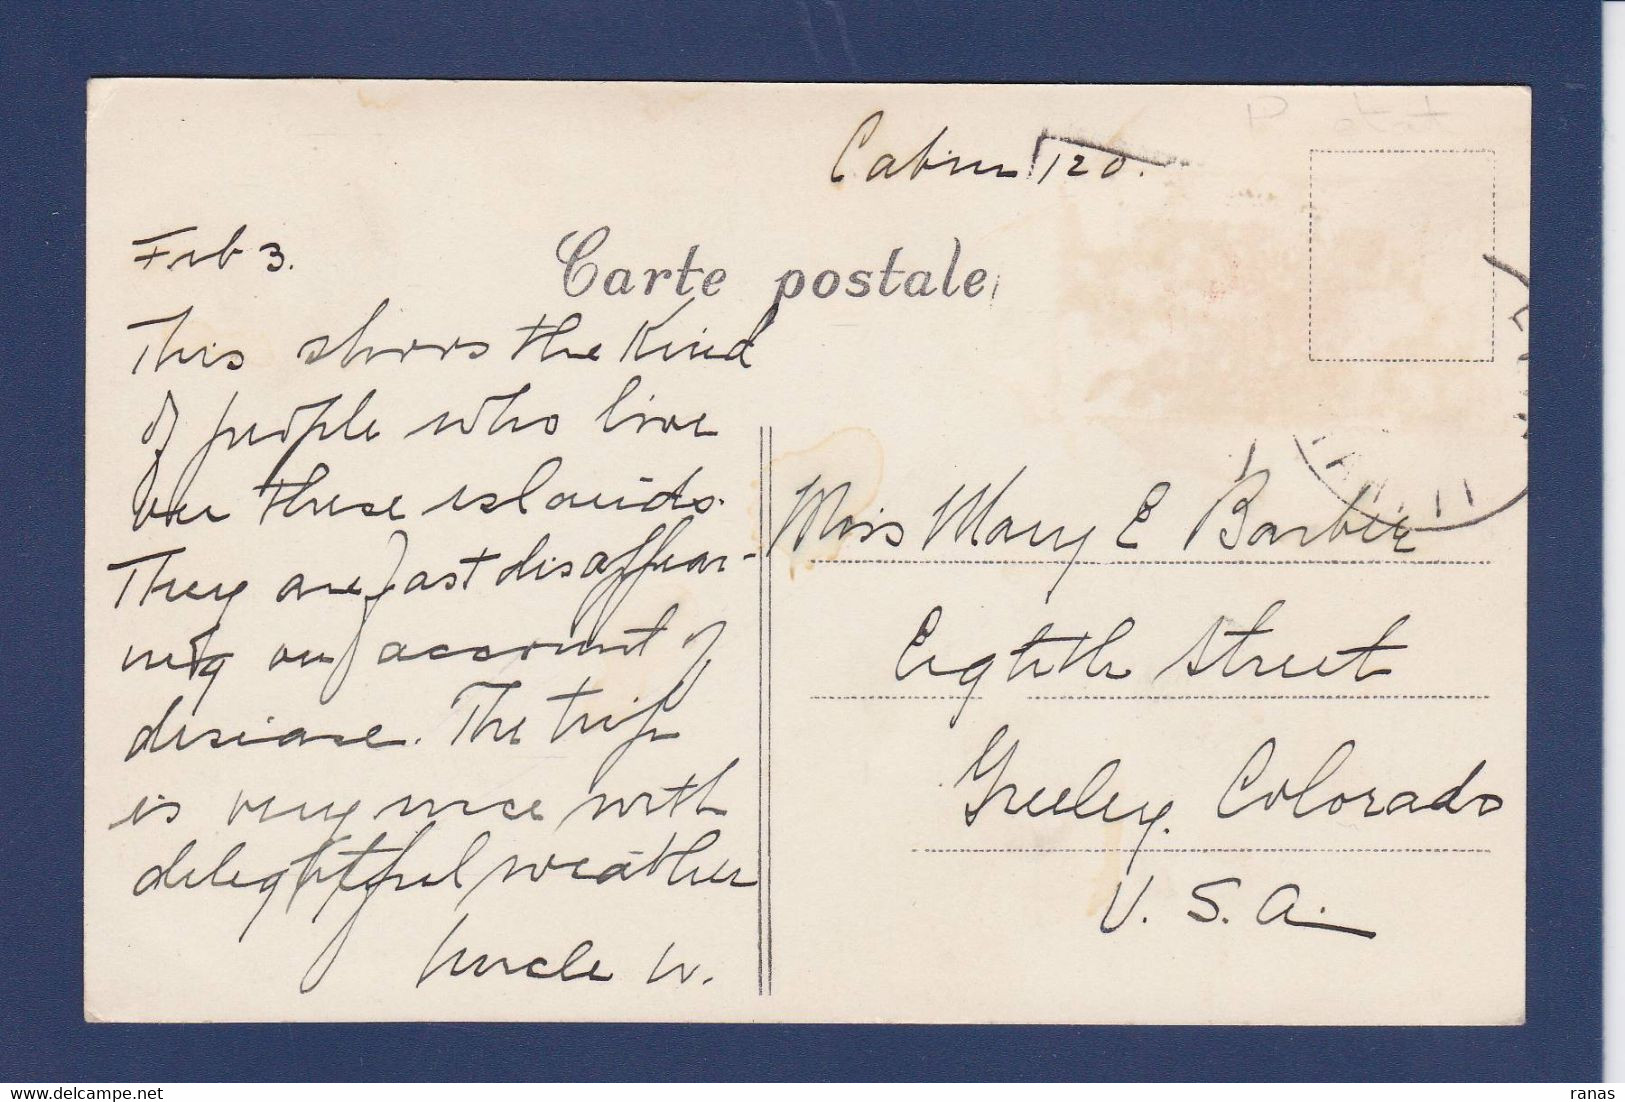 Cabin 120.
Feb 3.
Carte postale
This shows the kind
of people who live
on these islands.
They are fast disappear-
ing on account of
disease. The trip
is very nice with
delightful weather
Uncle W.
Miss Mary E Barber
Eighth Street
Greeley. Colorado
U. S. A.
ranas